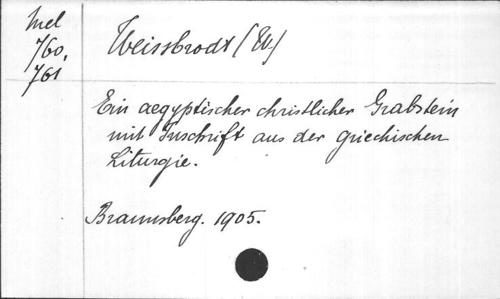 Mel
760,
761
Weissbrodt (W.)
Ein aegyptischer christlicher Grabstein
mit Inschrift aus der griechischen
Liturgie.
Braunsberg. 1905.